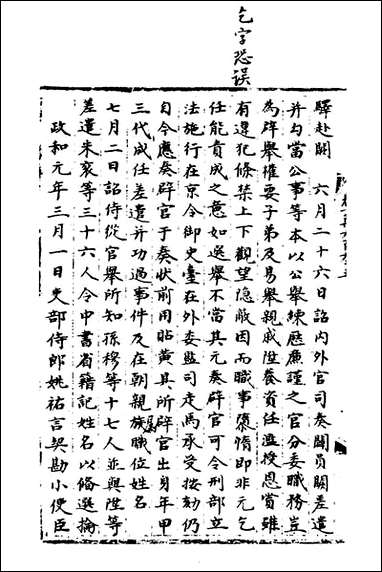 乞字恐误
驿赴阙　六月二十六日诏内外官司奏阙员阙差遣
并勾當公事等本以公舉練歷廉謹之官分委職務豈
為辟舉權要子弟及易舉親戚陞養資任濫授恩賞雖
有違犯條禁上下觀望隐蔽因而職事隳惰即非元乞
任能責成之意如選舉不當其元奏辟官可令刑部立
法施行在京令御史臺在外委監司走馬承受按劾仍
自今應奏辟官于奏状前用貼黄具所辟官出身年甲
三代成任差遣并功過事件及在朝親族職位姓名
七月二日詔侍從官舉所知孫穆等十七人並與陞等
差遣朱衮等三十六人令中書省籍記姓名以備選掄
政和元年三月一日吏部侍郎姚祐言契勘小使臣